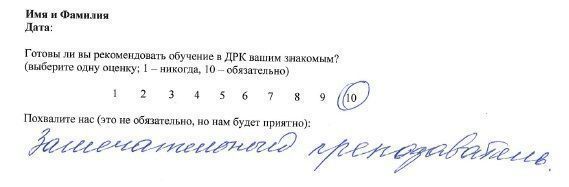 Имя и Фамилия
Дата:
Готовы ли вы рекомендовать обучение в ДРК вашим знакомым?
(выберите одну оценку; 1 – никогда, 10 – обязательно)
1 2 3 4 5 6 7 8 9 10
Похвалите нас (это не обязательно, но нам будет приятно):
Замечательный преподаватель.